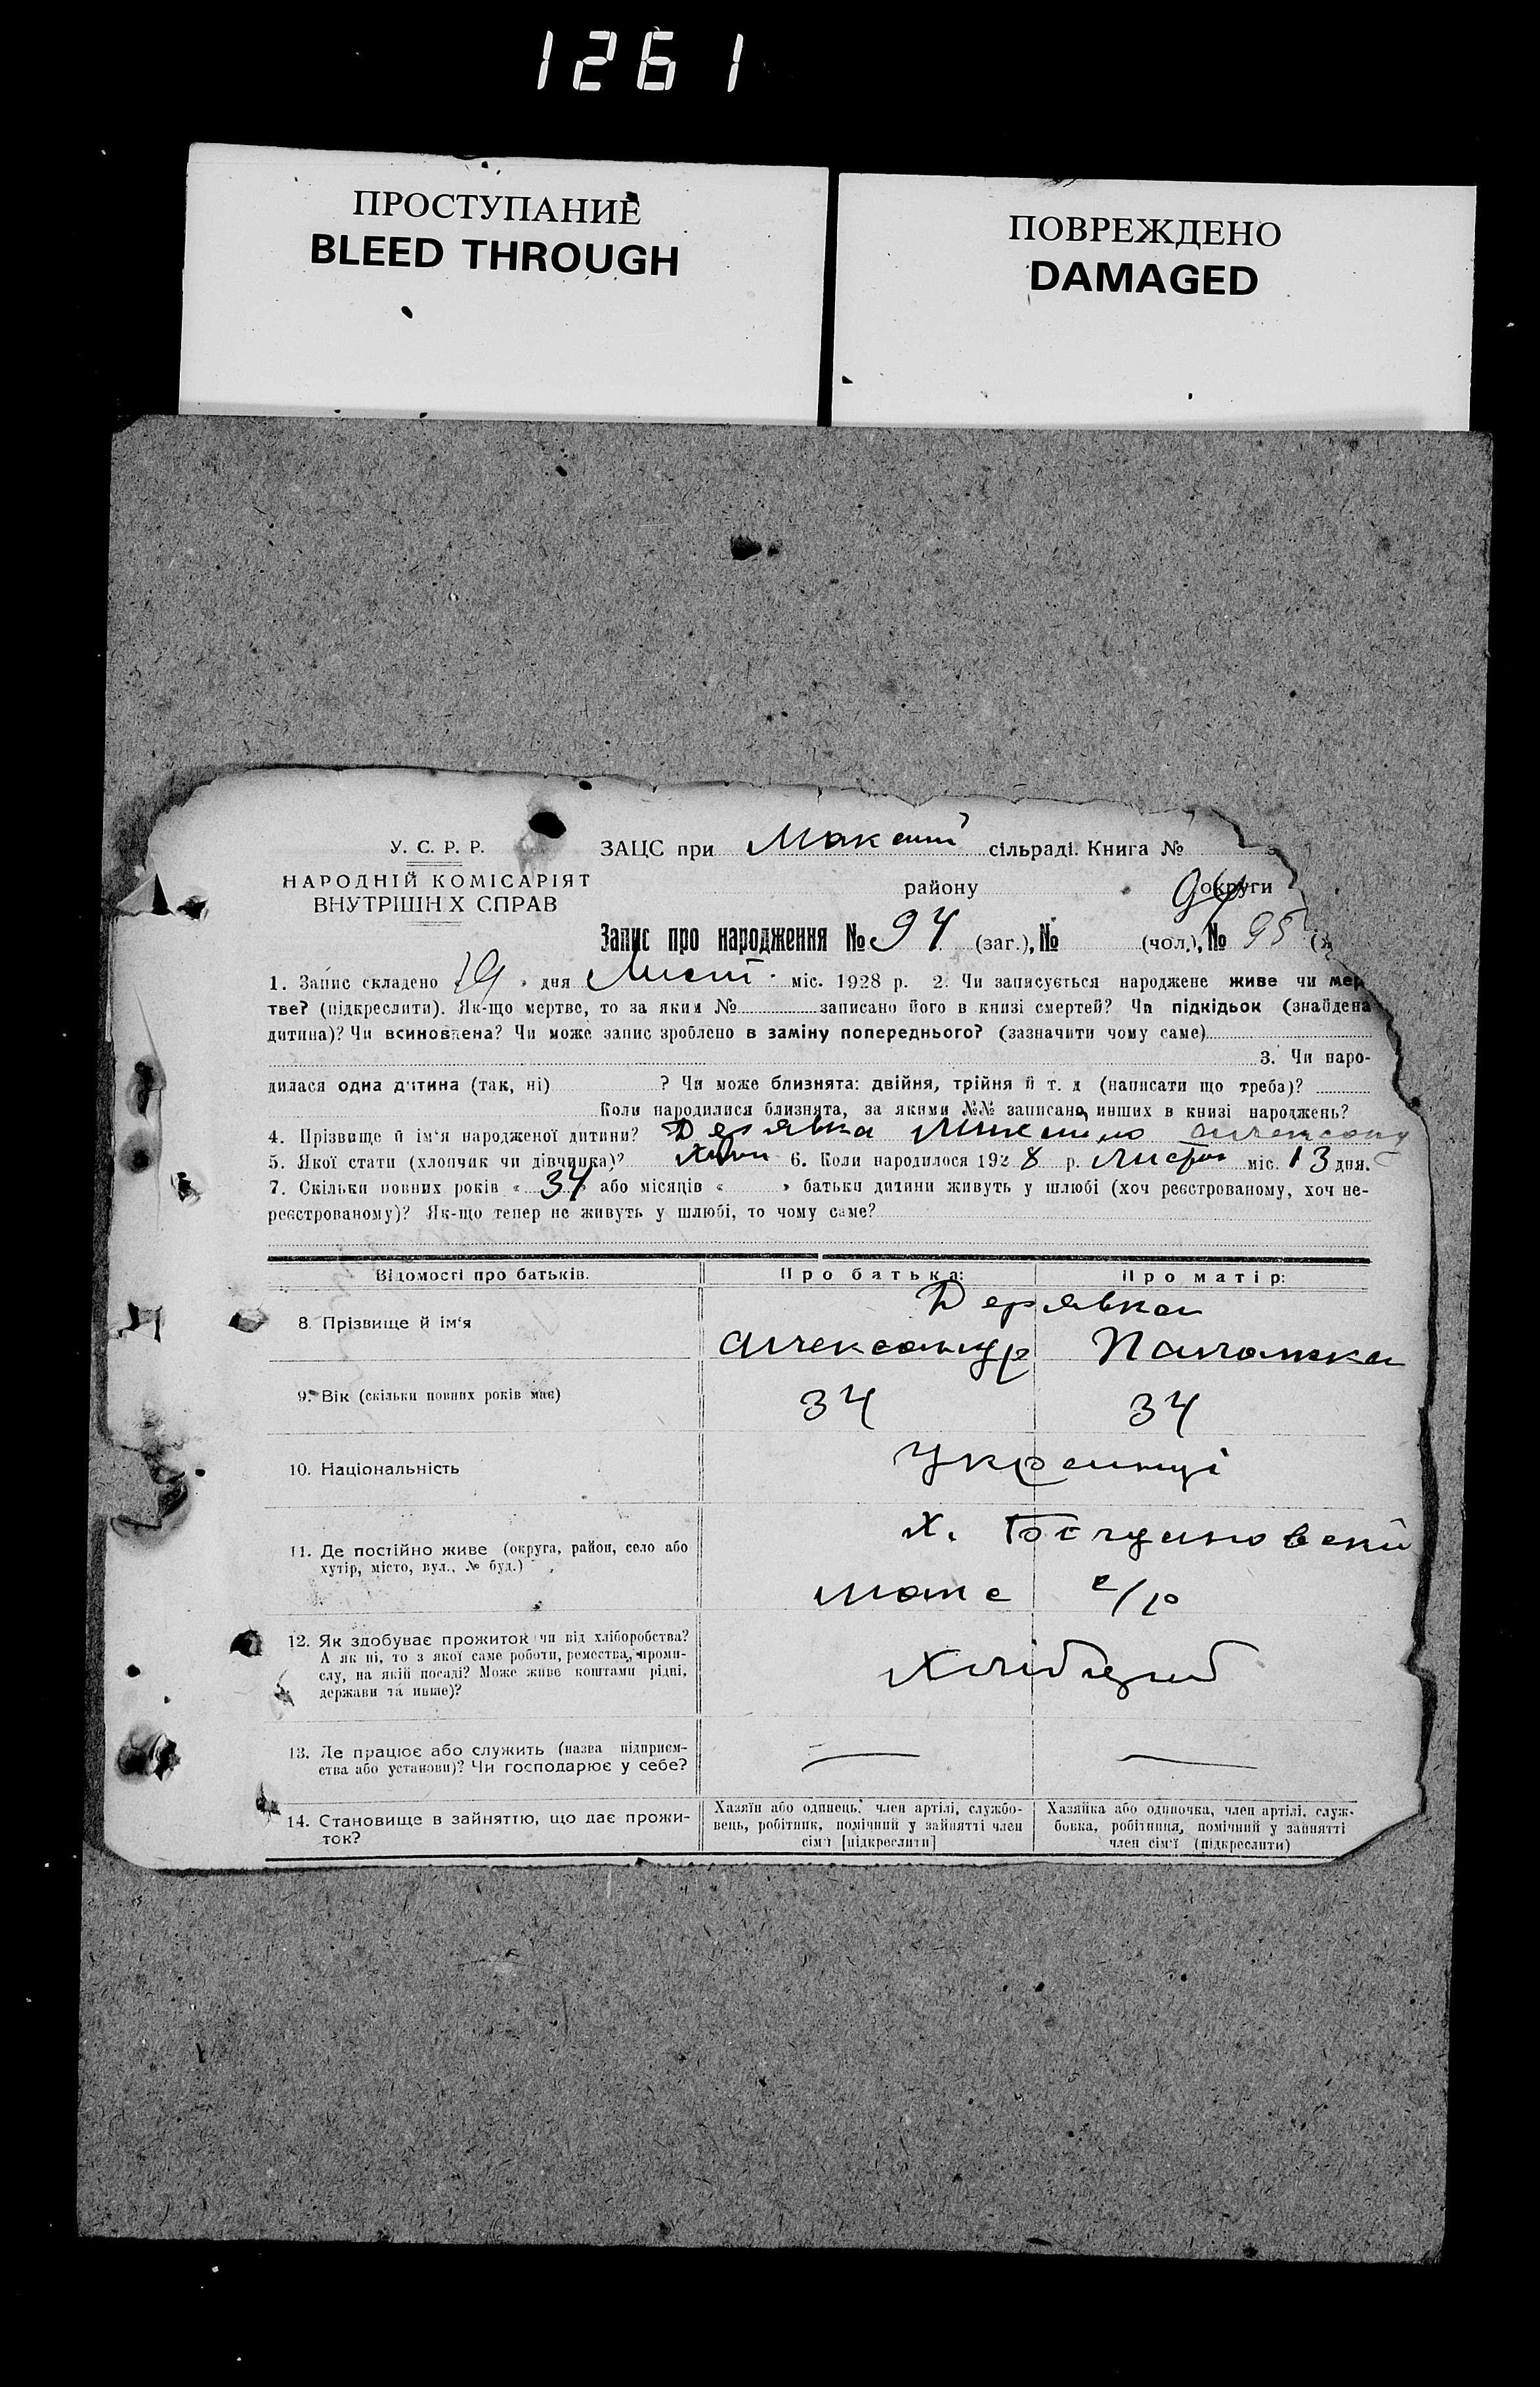 1261
ПРОСТУПАНИЕ
BLEED THROUGH
ПОВРЕЖДЕНО
DAMAGED
У. С. Р. Р.
НАРОДНІЙ КОМІСАРІЯТ
ВНУТРІШН Х СПРАВ
ЗАЦС при сільраді. Книга №
району округи
Запис про народження № 94 (заг.), № (чол.), № 95
1. Запис складено 19 » дня Лист. міс. 1928 р. 2. Чи записується народжене живе чи мер
тве? (підкреслити). Як-що мертве, то за яким № записано його в книзі смертей? Чи підкідьок (знайдена
дитина)? Чи всиновлена? Чи може запис зроблено в заміну попереднього? (зазначити чому саме)
3. Чи наро-
дилася одна дитина (так, ні) ? Чи може близнята: двійня, трійня й т. д (написати що треба)?
Коли народилися близнята, за якими №№ записано, инших в книзі народжень?
4. Прізвище й ім'я народженої дитини? Дерявка
5. Якої стати (хлопчик чи дівчинка)? 6. Коли народилося 1928 р. міс. 13 дня.
7. Скільки повних років « 34 » або місяців « » батьки дитини живуть у шлюбі (хоч реєстрованому, хоч не-
реєстрованому)? Як-що тепер не живуть у шлюбі, то чому саме?
Відомості про батьків. Про батька: Про матір:
Дерявка
8. Прізвище й ім'я Александр Палажка
9. Вік (скільки повних років має) 34 34
10. Національність Украинці
11. Де постійно живе (округа, район, село або
хутір, місто, вул., № буд.)
х. Богдановский
Макс с/р
12. Як здобуває прожиток чи від хліборобства?
А як ні, то з якої саме роботи, ремества, проми-
слу, на якій посаді? Може живе коштами рідні,
держави та инше)?
Хлібороб
13. Де працює або служить (назва підприєм-
ства або установи)? Чи господарює у себе?
14. Становище в зайняттю, що дає прожи-
ток?
Хазяїн або одинець, член артілі, службо-
вець, робітник, помічний у зайнятті член
сім'ї [підкреслити]
Хазяйка або одиночка, член артілі, служ-
бовка, робітниця, помічний у зайнятті
член сім'ї (підкреслити)